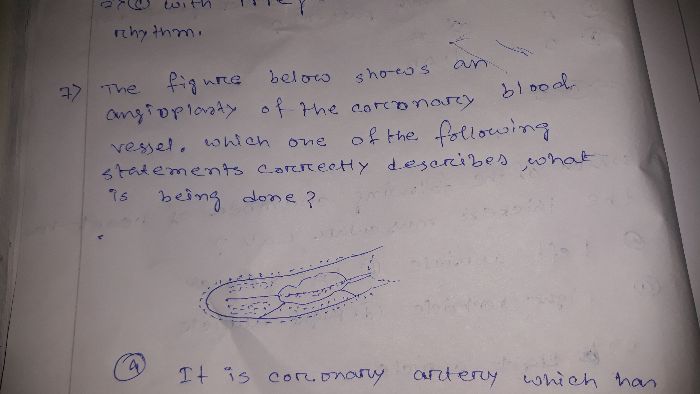 with
rhythm.
7) The figure below shows an
angioplasty of the coronary blood
vessel. which one of the following
statements correctly describes, what
is being done?
(a) It is coronary artery which has